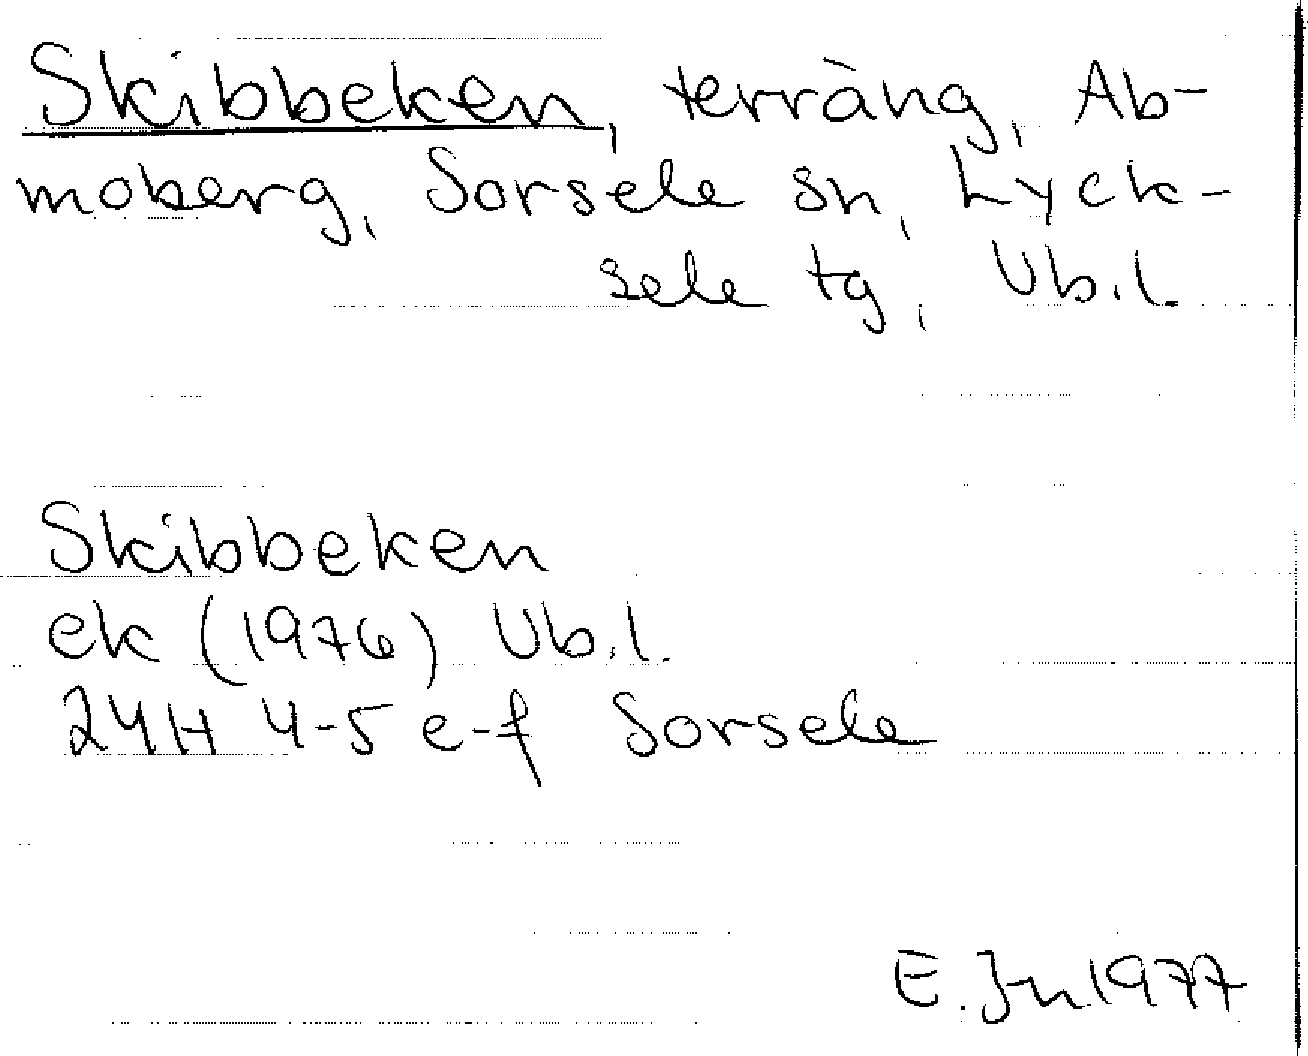 Skibbeken, terräng, Ab-
moberg, Sorsele sn, Lyck-
sele tg, Vb.l.
Skibbeken
ek (1976) Vb.l.
24H 4-5 e-f Sorsele
E. Jn 1977